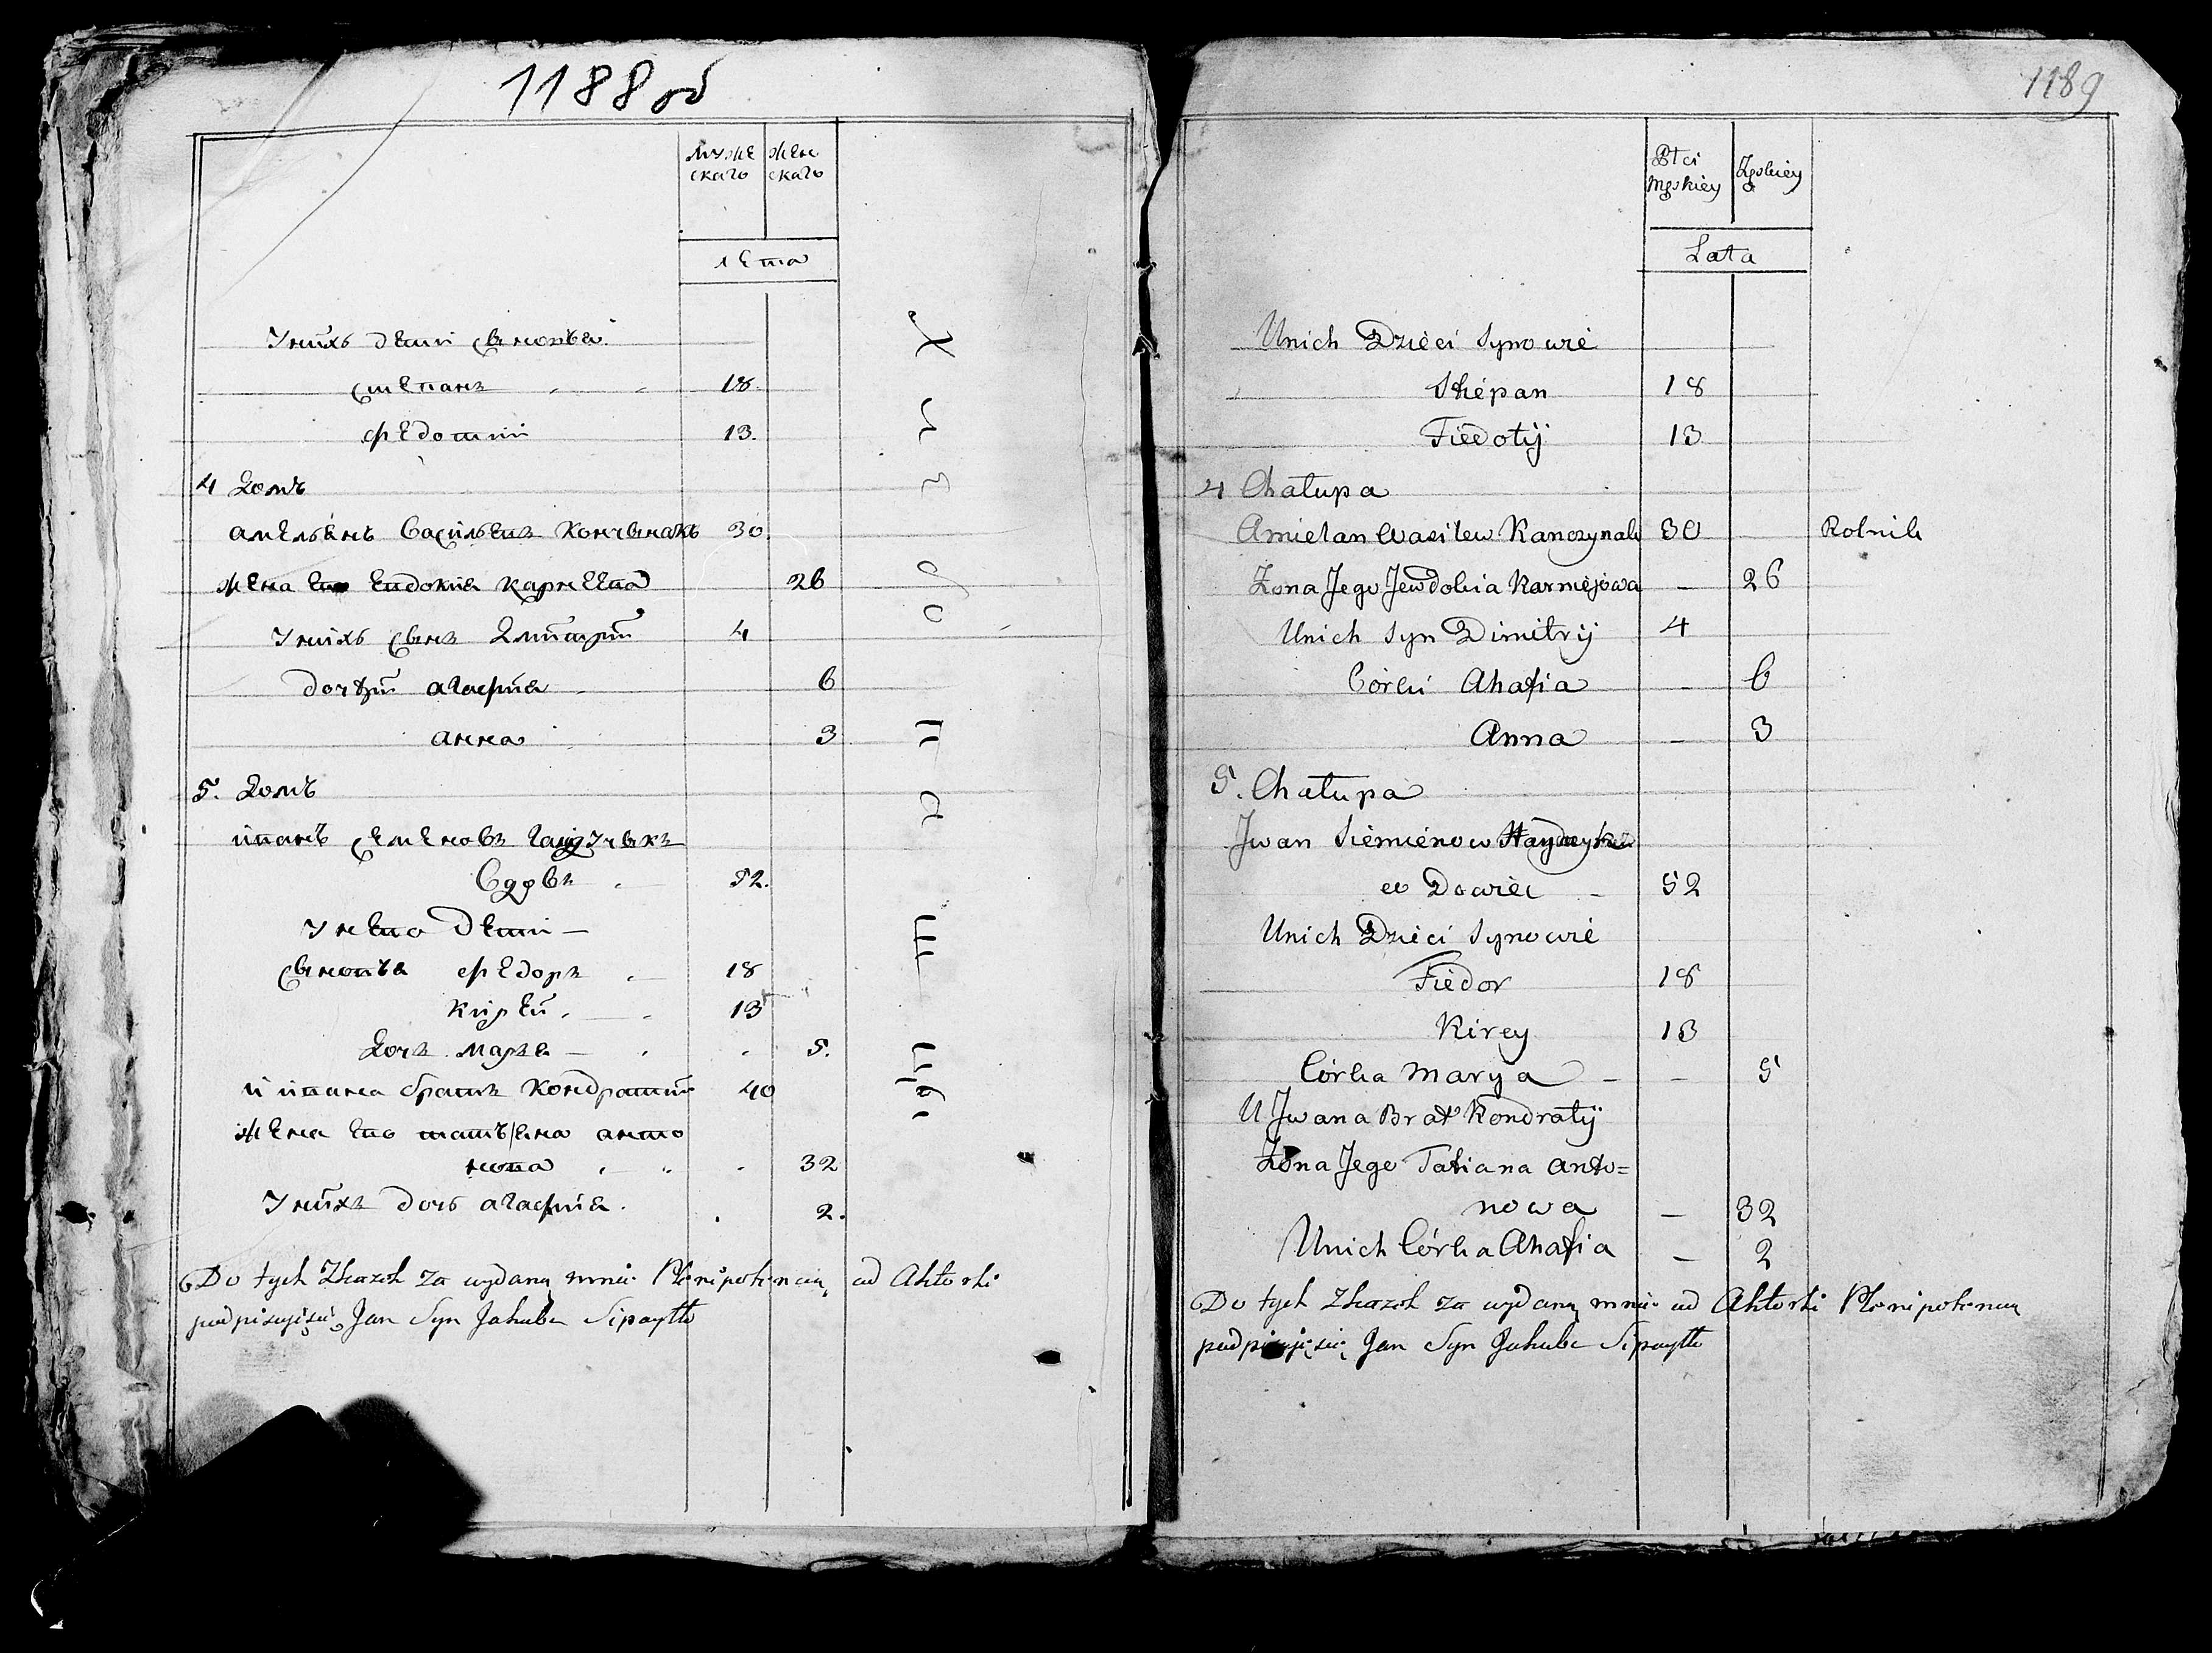 1188 об
муже женс
скаго скаго
лета
У нихъ дети сыновья
степанъ 18.
федотий 13.
4 Домъ
амельянъ Васильевъ Кончынакъ 30
жена его евдокия карнеева 26
У нихъ сынъ Дмитрий 4
дочери агафия 6
анна 3
5. Домъ
иванъ семеновъ
Вдовъ 52.
У него дети
сыновья федоръ 18
кирей 13
Дочь марья 5.
и ивана братъ Кондратий 40
жена его татьяна анто
нова 32
У нихъ дочь агафия 2.
Хлебопашцы
Do tych Skazok za wydaną mnie Plenipotencią od Aktorki
podpisuję się Jan Syn Jakuba Sipayłło
1189
Płci
męskiey Żęskiey
Lata
Unich Dzieci Synowie
Stiepan 18
Fiedotij 13
4 Chałupa
Amielan Wasilew Kanczynak 30 Rolnik
Żona Jego Jewdokia Karniejowa — 26
Unich Syn Dimitrij 4
Córki Ahafia — 6
Anna — 3
5. Chałupa
Jwan Siemienow
w Dowiec - 52
Unich Dzieci Synowie
Fiedor 18
Kirey 13
Córka Marya - - 5
U Jwana Brat Kondratij
Żona Jego Tatiana Anto=
nowa — 32
Unich Córka Ahafia — 2
Do tych Skazok za wydaną mnie od Aktorki Plenipotencią
podpisuję się Jan Syn Jakuba Sipayłło